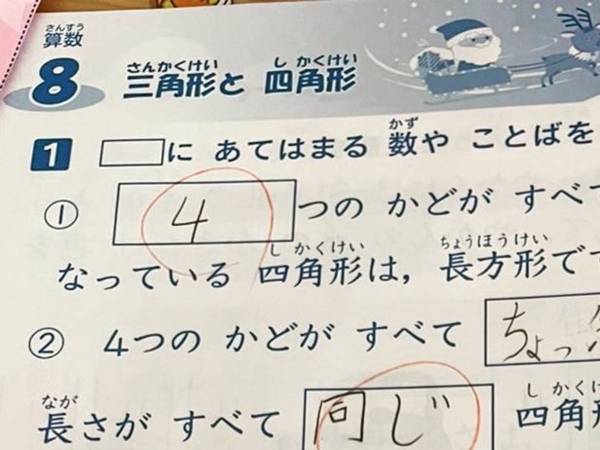 さんすう
算数
8 三角形と 四角形
さんかくけい し かくけい
1 □に あてはまる 数や ことばを
かず
① 4 つの かどが すべて
し かくけい ちょうほうけい
なっている 四角形は, 長方形で
② 4つの かどが すべて ちょっ
なが
長さが すべて 同じ 四角
し かく